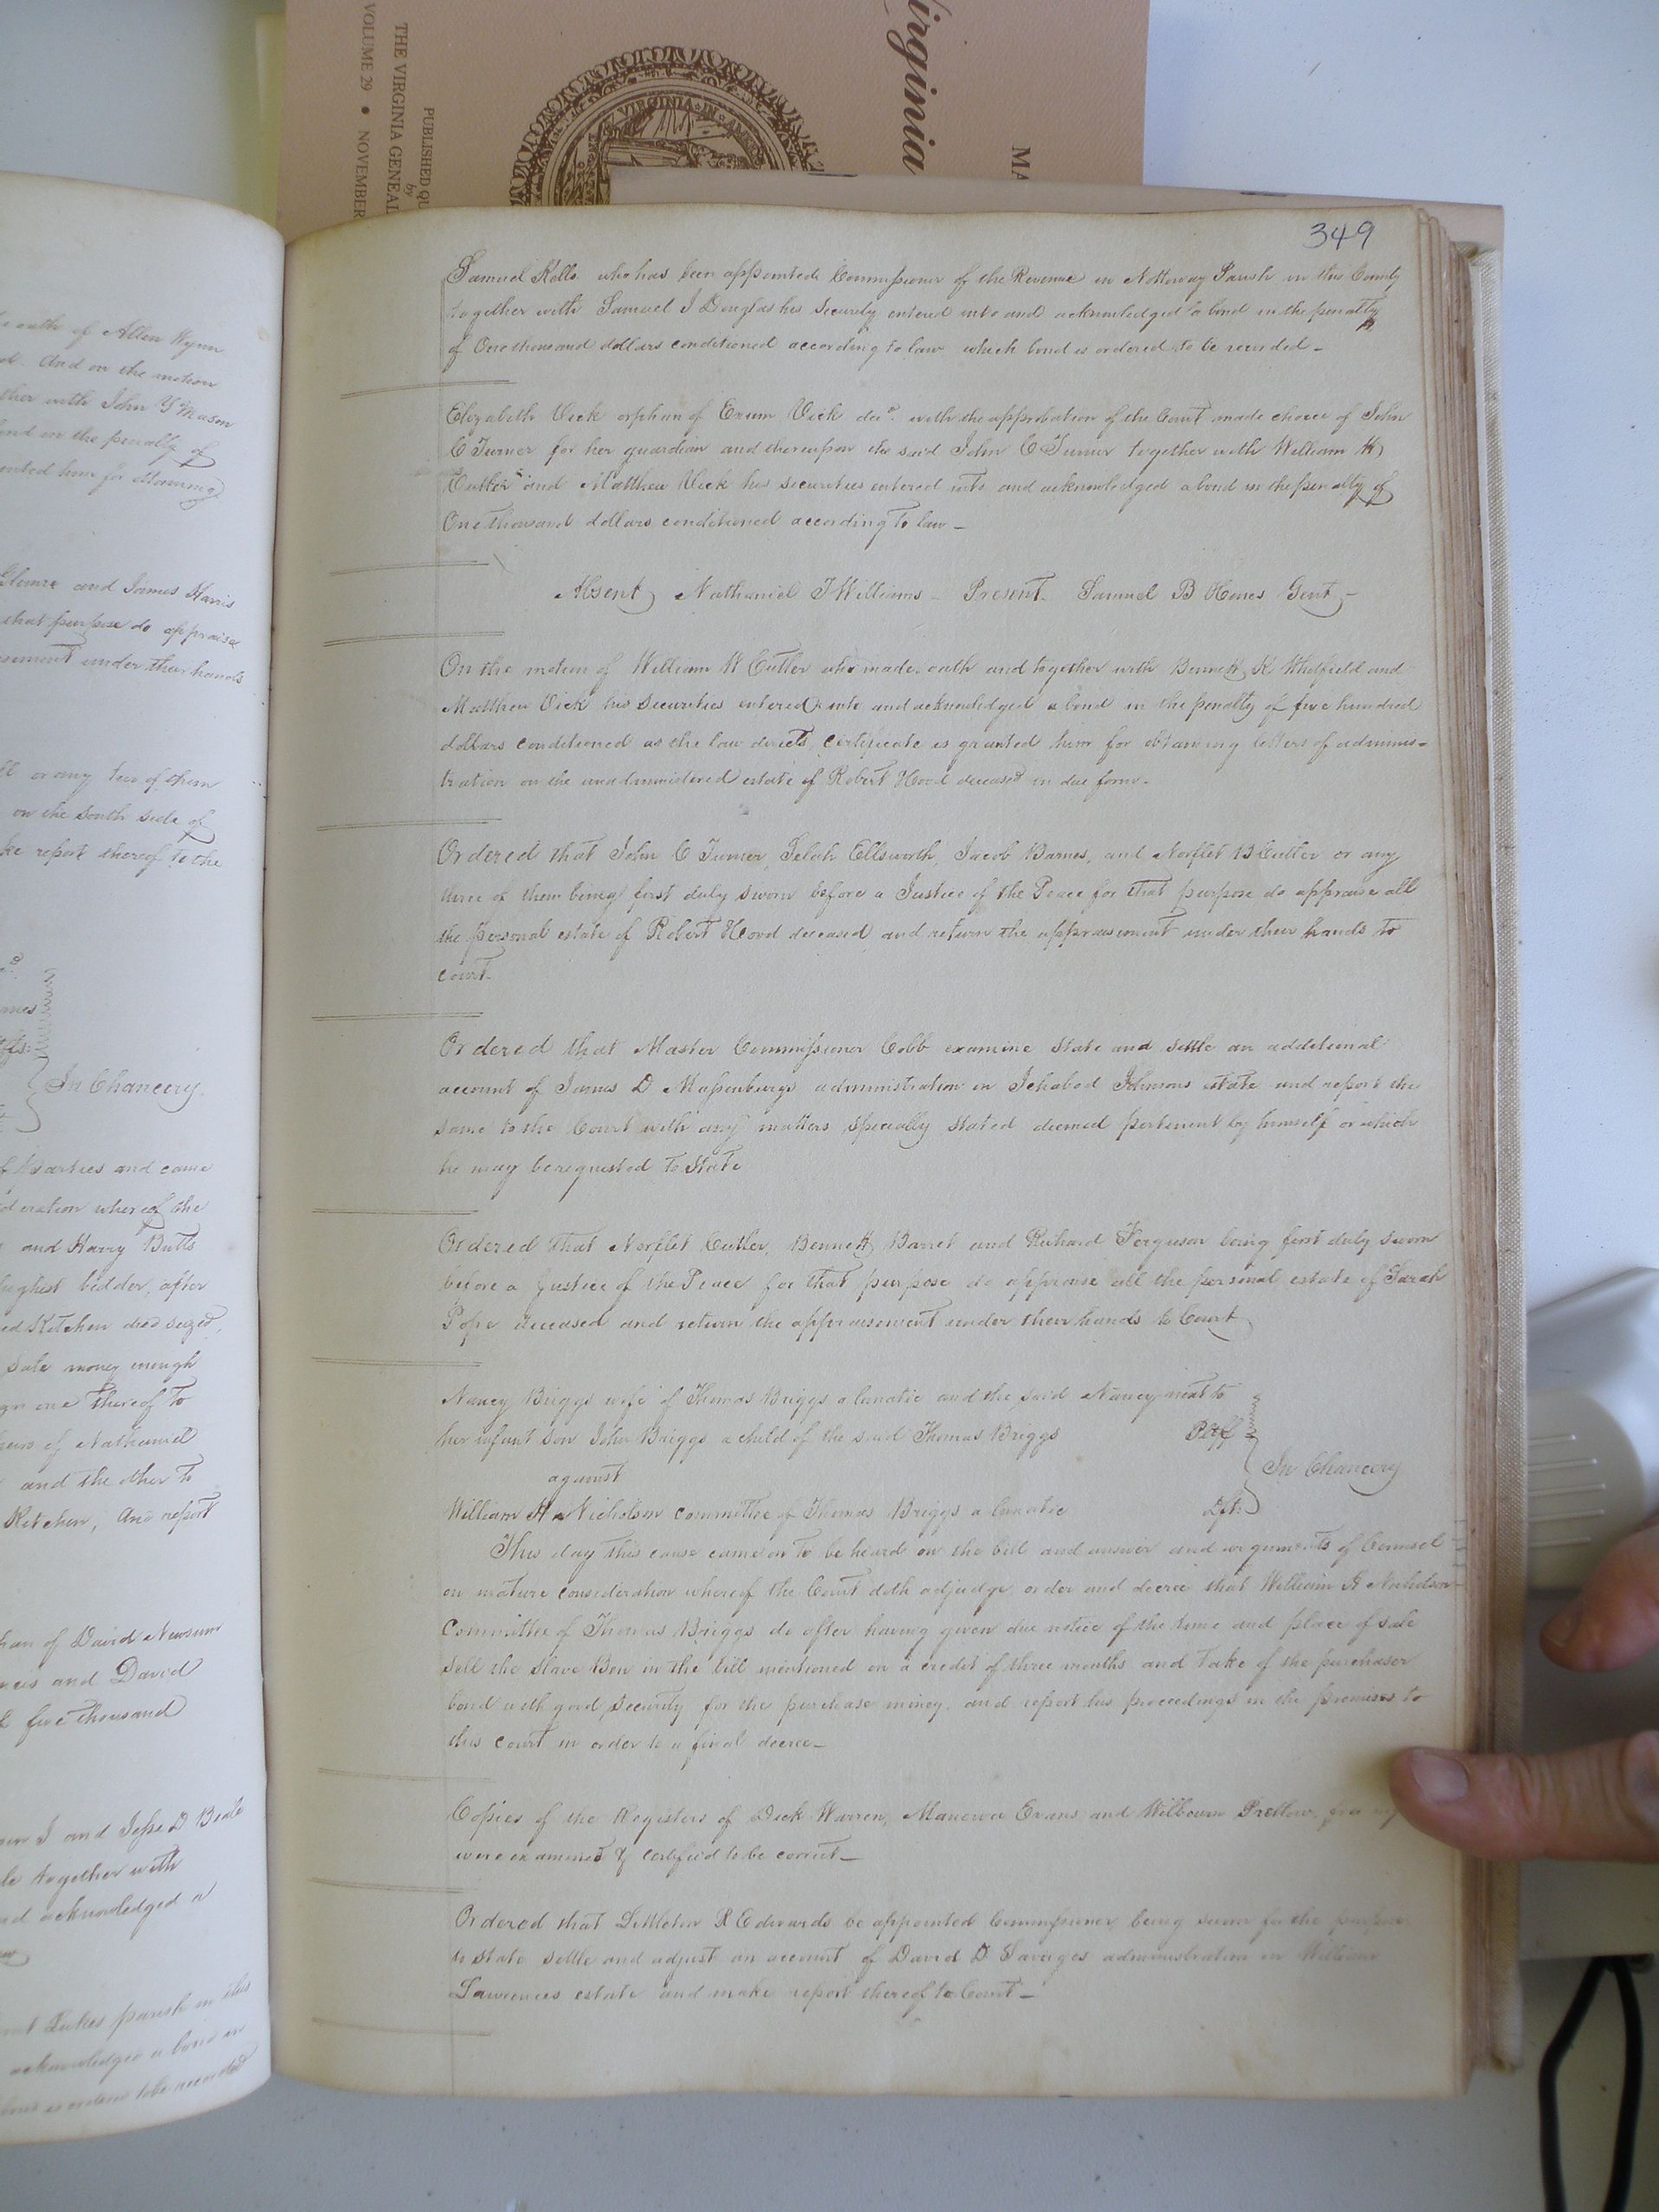 Virginia
MA
VIRGINIA
PUBLISHED QU
by
THE VIRGINIA GENEAL
VOLUME 29 • NOVEMBER
oath of Allen Wynn
And on the motion
with John Y Mason
in the penalty of
him for obtaining
and James Harris
that purpose do appraise
under their hands
or any two of them
on the South side of
report thereof to the
In Chancery.
parties and came
whereof the
and Harry Butts
highest bidder, after
Kitchen died seized,
sale money enough
one thereof to
of Nathaniel
and the other to
Kitchen, And report
of David Newsum
and David
five thousand
I and Jesse D Beale
together with
acknowledged a
Lukes parish in this
acknowledged a bond in
is ordered to be recorded
349
Samuel Kello who has been appointed Commissioner of the Revenue in Nottoway Parish in this County
together with Samuel J Douglas his Security entered into and acknowledged a bond in the penalty
of One thousand dollars conditioned according to law which bond is ordered to be recorded—
Elizabeth Vick orphan of Exum Vick decd. with the approbation of the Court made choice of John
C Turner for her guardian and thereupon the said John C Turner together with William H
Cutler and Matthew Vick his securities entered into and acknowledged a bond in the penalty of
One thousand dollars conditioned according to law—
Absent Nathaniel T Williams - Present Samuel B Hines Gent—
On the motion of William H Cutler who made oath and together with Bennett K Whitfield and
Matthew Vick his Securities entered into and acknowledged a bond in the penalty of five hundred
dollars conditioned as the law directs, certificate is granted him for obtaining letters of adminis-
tration on the unadministered estate of Robert Hood deceased in due form-
Ordered that John C Turner, Selah Ellsworth, Jacob Barnes, and Norflet B Cutler or any
three of them being first duly sworn before a Justice of the Peace for that purpose do appraise all
the personal estate of Robert Hood deceased and return the appraisement under their hands to
court-
Ordered that Master Commissioner Cobb examine state and settle an additional
account of James D Massenburgs administration on Ichabod Johnsons estate and report the
same to the Court with any matters specially stated deemed pertinent by himself or which
he may be requested to State
Ordered that Norflet Cutler, Bennett Barret and Richard Ferguson being first duly sworn
before a Justice of the Peace for that purpose do appraise all the personal estate of Sarah
Pope deceased and return the appraisement under their hands to Court
Nancy Briggs wife of Thomas Briggs a lunatic and the said Nancy next to
her infant son John Briggs a child of the said Thomas Briggs Pltff
against In Chancery
William A Nicholson committee of Thomas Briggs a lunatic Dft.
This day this cause came on to be heard on the bill and answer and arguments of Counsel
on mature consideration whereof the Court doth adjudge order and decree that William A Nicholson
Committee of Thomas Briggs do after having given due notice of the time and place of sale
sell the slave Ben in the bill mentioned on a credit of three months and take of the purchaser
bond with good security for the purchase money, and report his proceedings in the premises to
this court in order to a final decree—
Copies of the Registers of Dick Warren, Manerva Evans and Wilbourn Pretlow, free
were examined & certified to be correct—
Ordered that Littleton R Edwards be appointed Commissioner being sworn for the purpose
to state settle and adjust an account of David D Savages administration on William
Lawrences estate and make report thereof to Court—